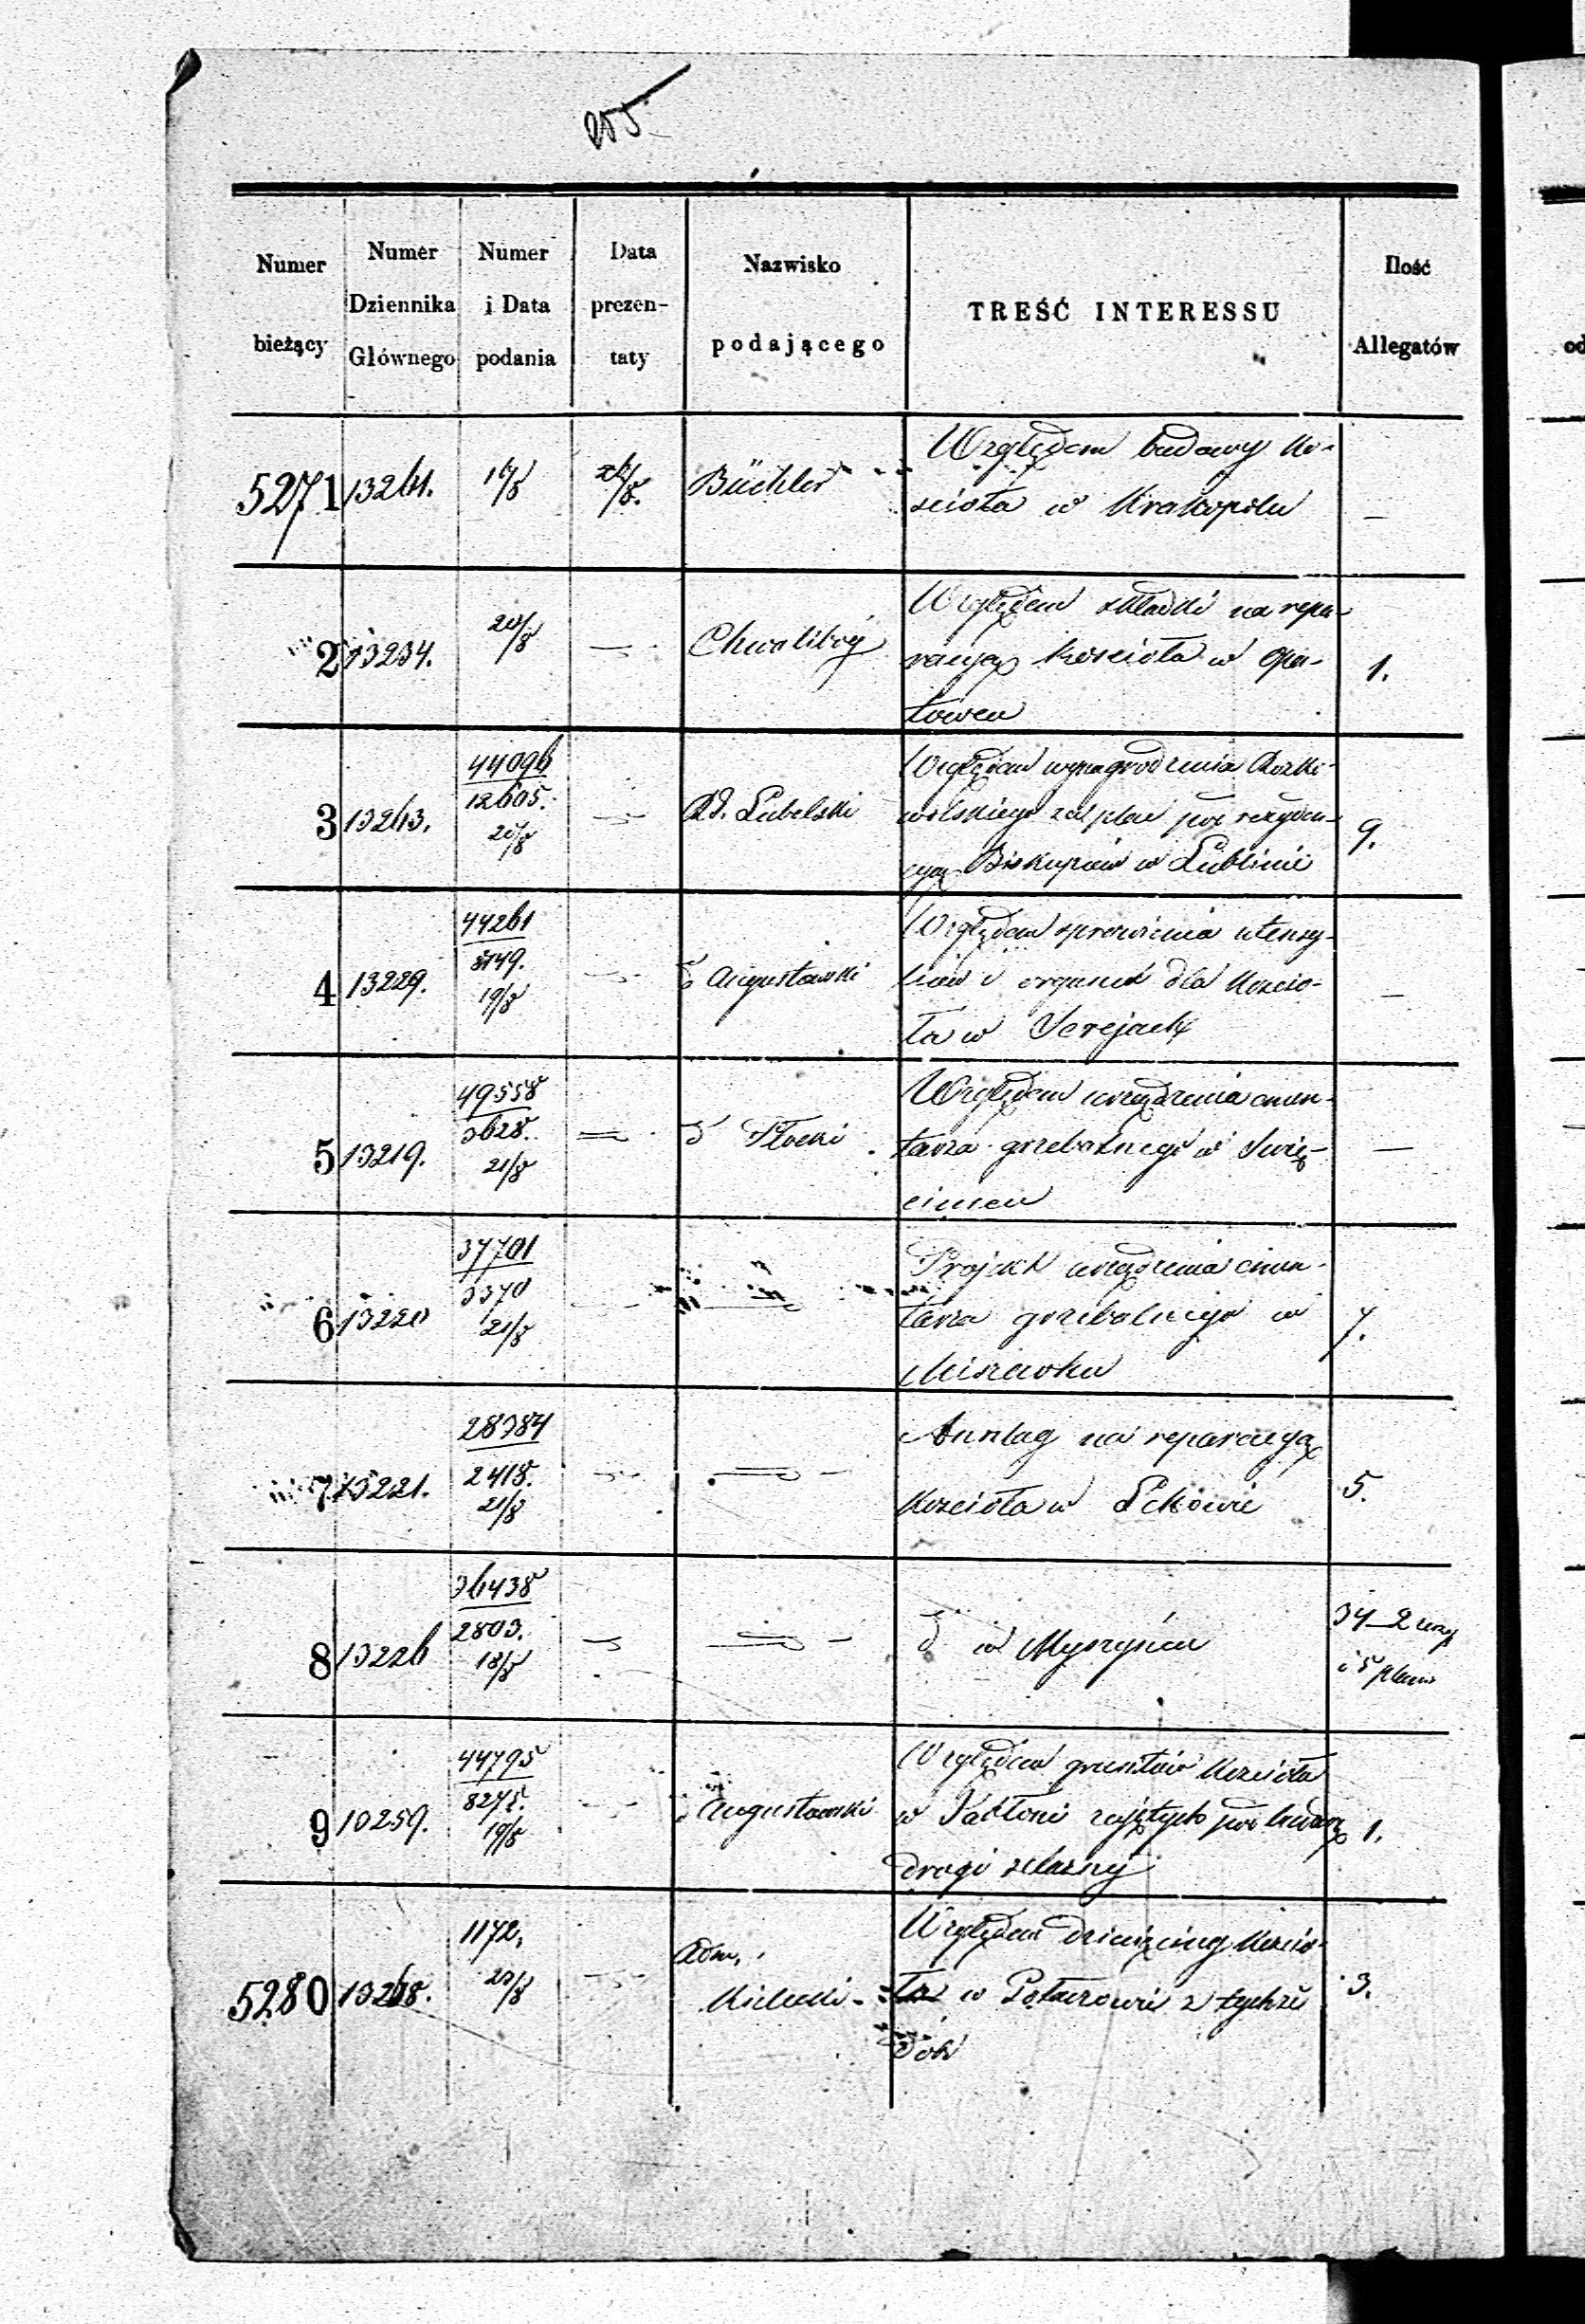 255
Numer bieżący
Numer Dziennika Głównego
Numer i Data podania
Data prezen-taty
Nazwisko podającego
TREŚĆ INTERESSU
Ilość Allegatów
5271 13261. 16/8 26/8. Büchler Względem budowy Ko-
scioła w Krakopolu —
2 13234. 20/8 Chwalibóg Względem składki na repa-
racyą kościoła w Opa-
towcu 1.
3 13263. 44096
12605.
20/8 Rd. Lubelski Względem wynagrodzenia
za plac pod rezyden-
cyą Biskupów w Lublinie 9.
4 13229. 44261
8149.
19/8 d Augustowski Względem sprawienia utensy-
liów i organu dla Koscio-
ła w Serejach —
5 13219. 49558
3628.
21/8 d Płocki Względem urządzenia cmen-
tarza grzebalnego w
—
6 13220 37701
3370
21/8 Projekt urządzenia cmen-
tarza grzebalnego w
Miszewku 7.
7 13221. 28384
2418.
21/8 Anszlag na reparacyą
Koscioła w 5.
8 13226 36438
2803.
18/8 d w Myszyńcu 34
i 5 plan
9 10259. 44795
8275.
19/8 d Augustowski Względem gruntów Koscioła
w Jabłoni zajętych pod budowę
drogi żelazny 1.
5280 13268. 1172.
23/8 Adm.
Kielecki Względem dziesięciny Koscio-
ła w z tychże
dóbr 3.